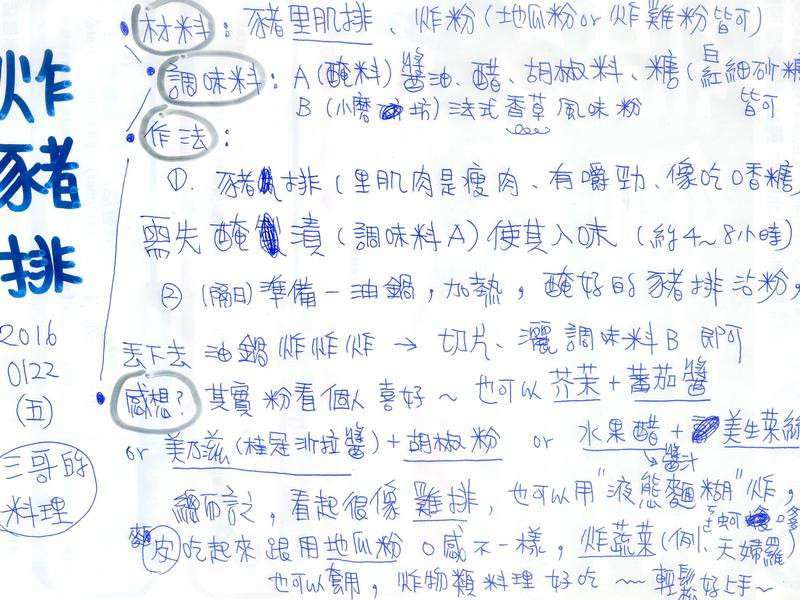 炸豬排
2016
0122
(五)
三哥的
料理
材料：豬里肌排、炸粉(地瓜粉or炸雞粉皆可)
調味料：A(醃料)醬油、醋、胡椒料、糖(紅細砂糖
皆可
B (小磨坊)法式香草風味粉
作法：
①. 豬排(里肌肉是瘦肉、有嚼勁、像吃口香糖)
需先醃漬(調味料A)使其入味(約4~8小時)
② (隔日)準備一油鍋,加熱,醃好的豬排沾粉,
丟下去 油鍋 炸炸炸 → 切片、灑調味料B 即可
感想? 其實 粉看個人喜好~也可以 芥茉+蕃茄醬
or 美乃滋(桂冠沙拉醬)+胡椒粉 or 水果醋+美生菜絲
醬汁
總而言之,看起很像雞排,也可以用"液態麵糊"炸,
皮吃起來跟用地瓜粉口感不一樣,炸蔬菜(例、天婦羅)
也可以套用,炸物類料理好吃~~輕鬆好上手~